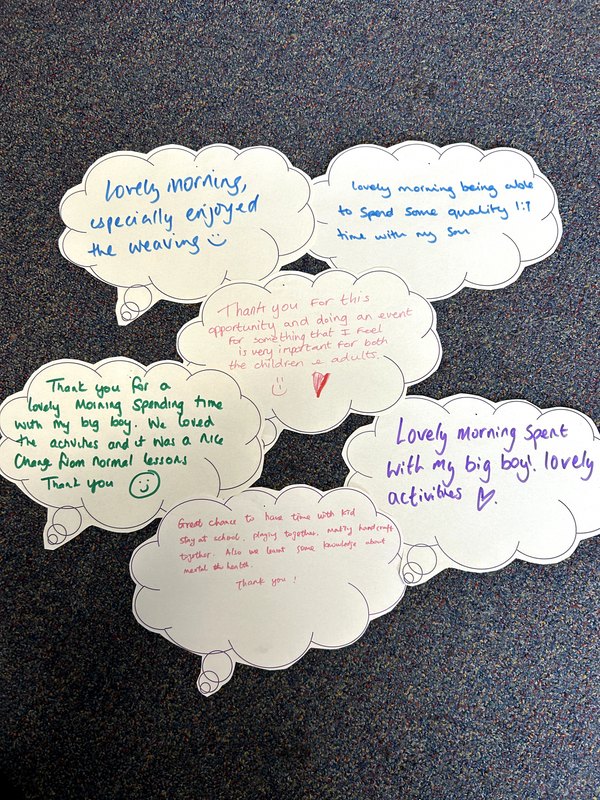 Lovely morning,
especially enjoyed
the weaving
lovely morning being able
to spend some quality 1:1
time with my son
Thank you for this
opportunity and doing an event
for something that I feel
is very important for both
the children & adults.
Thank you for a
lovely morning spending time
with my big boy. We loved
the activities and it was a nice
change from normal lessons
Thank you
Lovely morning spent
with my big boy! lovely
activities
Great chance to have time with kid
stay at school, playing together, making handcraft
together. Also we learnt some knowledge about
mental health.
Thank you!